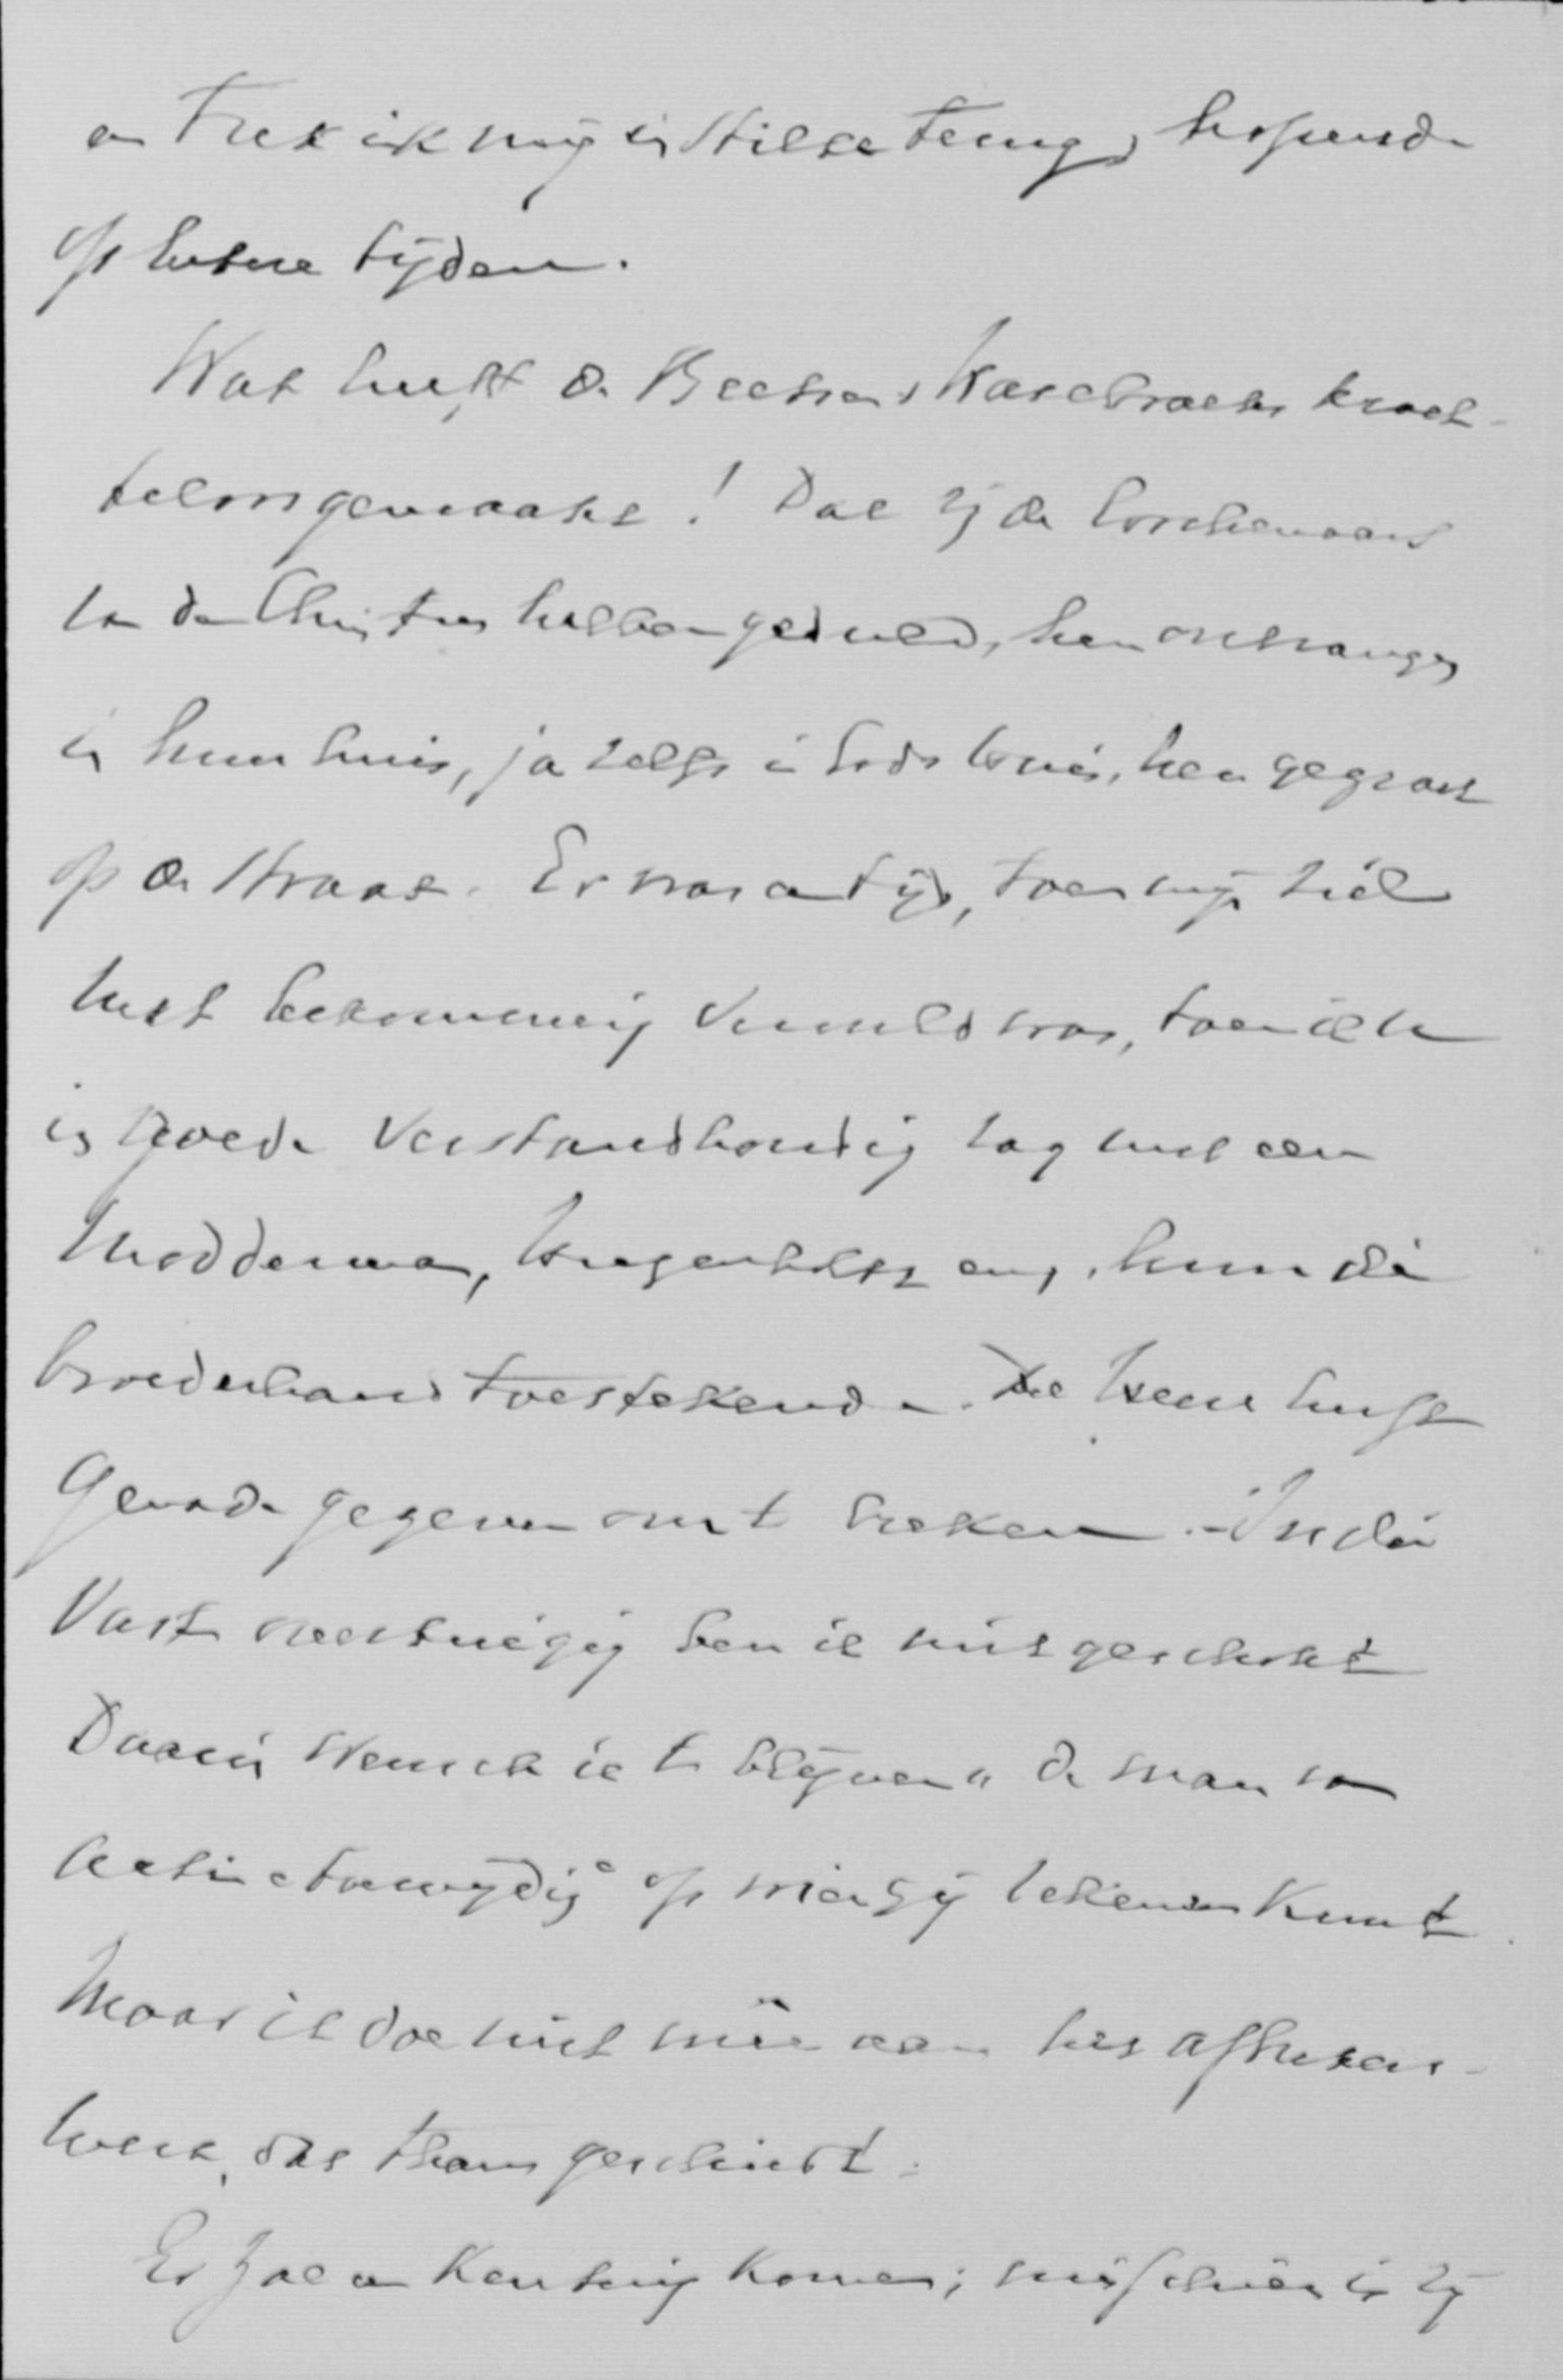 en trek ik mij in stilte terug, hopende
op betere tijden.
Wat heeft de Beetsen & Hasebroeks krach-
teloos gemaakt! Dat zij de loochenaars
van den Christus hebben geduld, hen ontvangen
in hun huis, ja zelfs in Gods huis, hen gegroet
op de straat. Er was een tijd, toen mijn ziel
met bekommering vervuld was, toen ik U
in goede verstandhouding zag met een
Modderman, en, hun die
broederhand toestekende. De Heere heeft
genade gegeven om te breken. In die
vaste overtuiging ben ik niet geschokt
Daarin wensch ik te blijven "de man van
" op wien gij rekenen kunt.
Maar ik doe niet mee aan het afbreken-
werk, dat thans geschiedt.
Er zal een kentering komen; misschien is zij